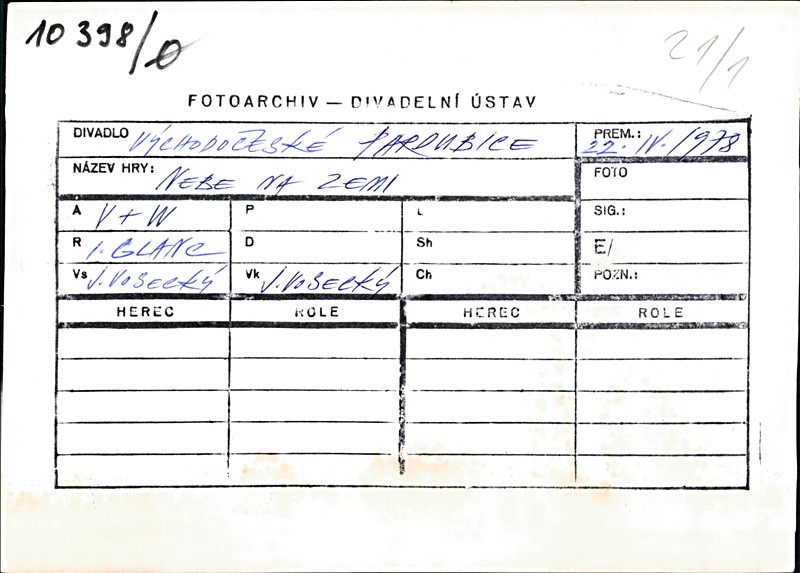 10 398/0
21/1
FOTOARCHIV — DIVADELNÍ ÚSTAV
DIVADLO VÝCHODOČESKÉ PARDUBICE PREM.: 22. IV. 1978
NÁZEV HRY: NEBE NA ZEMI FOTO
A V + W P L SIG.:
R I. GLANC D Sh E/
Vs J. VOSECKÝ Vk J. VOSECKÝ Ch POZN.:
HEREC ROLE HEREC ROLE